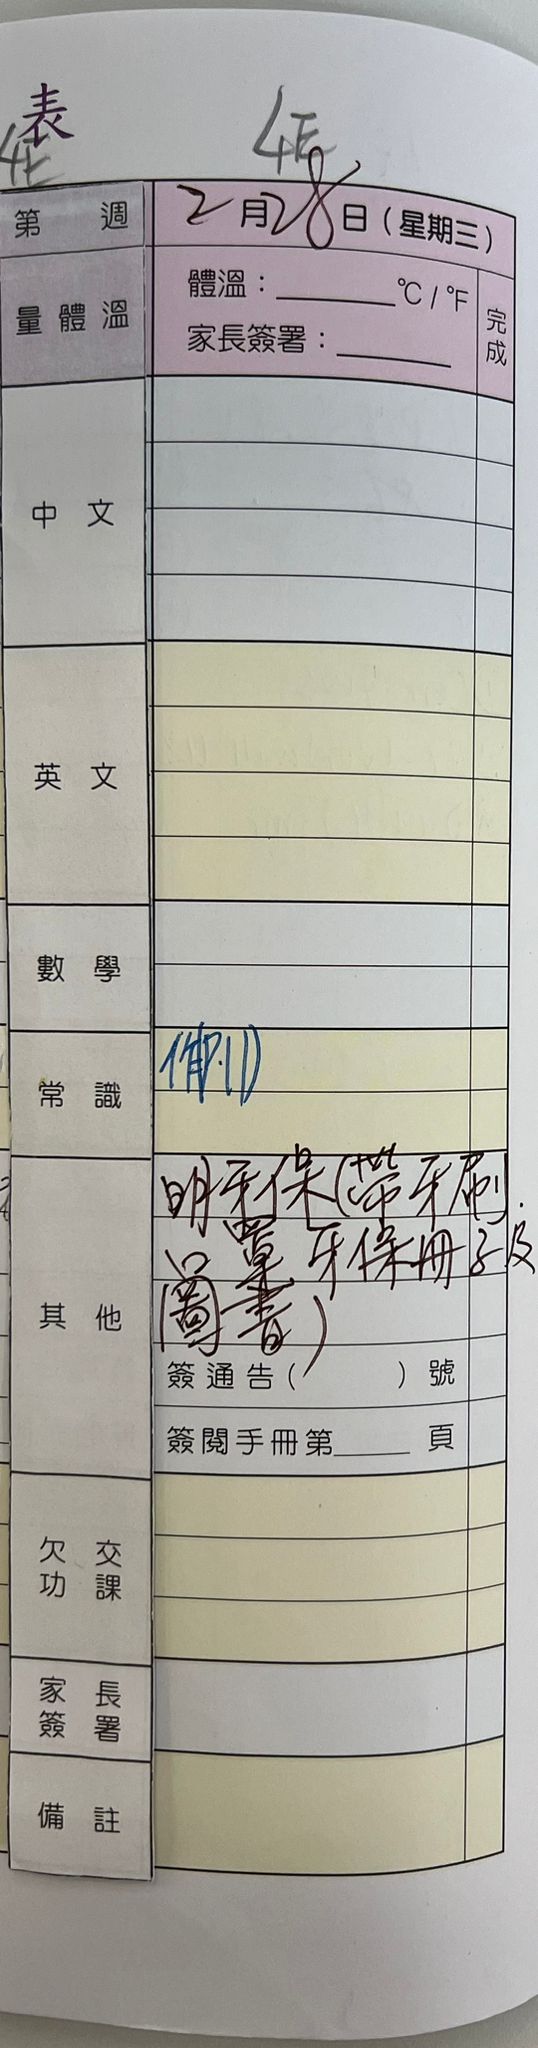 表
4E 4E
第 週 2月28日(星期三)
量體溫 體溫:______℃/℉ 完成
家長簽署:______
中文
英文
數學
常識
其他 明牙保(帶牙刷、
口罩、牙保冊子及
圖書)
簽通告( )號
簽閱手冊第____頁
欠交
功課
家長
簽署
備註